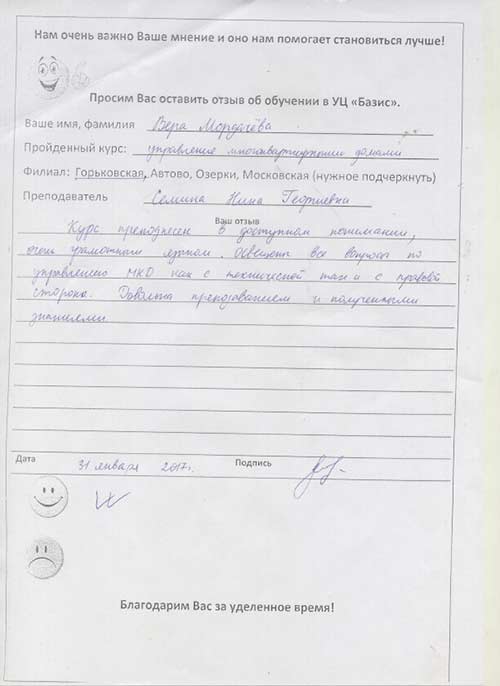 Нам очень важно Ваше мнение и оно нам помогает становиться лучше!
Просим Вас оставить отзыв об обучении в УЦ «Базис».
Ваше имя, фамилия Вера Мордачёва
Пройденный курс: управление многоквартирными домами
Филиал: Горьковская, Автово, Озерки, Московская (нужное подчеркнуть)
Преподаватель Семина Нина Георгиевна
Ваш отзыв
Курс преподнесен в доступном понимании,
очень грамотным языком. Освещены все вопросы по
управлению МКД как с технической так и с правовой
стороны. Довольна преподаванием и полученными
знаниями
Дата 31 января 2017г. Подпись
Благодарим Вас за уделенное время!